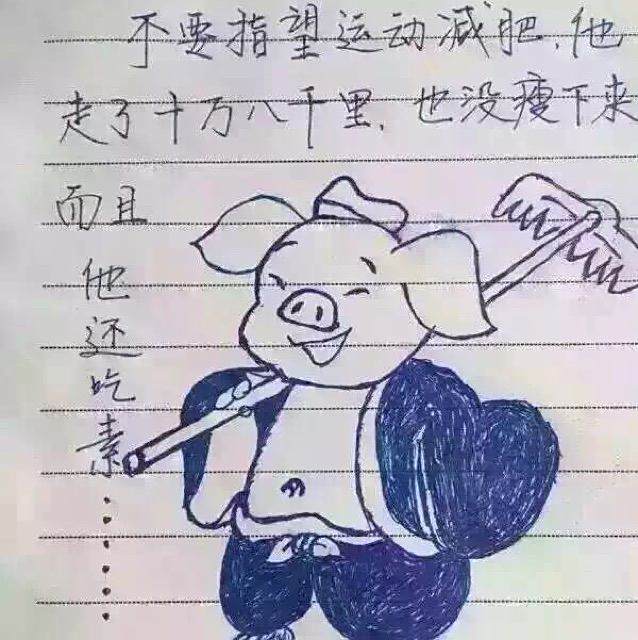 不要指望运动减肥,他
走了十万八千里,也没瘦下来
而且
他
还
吃
素
......